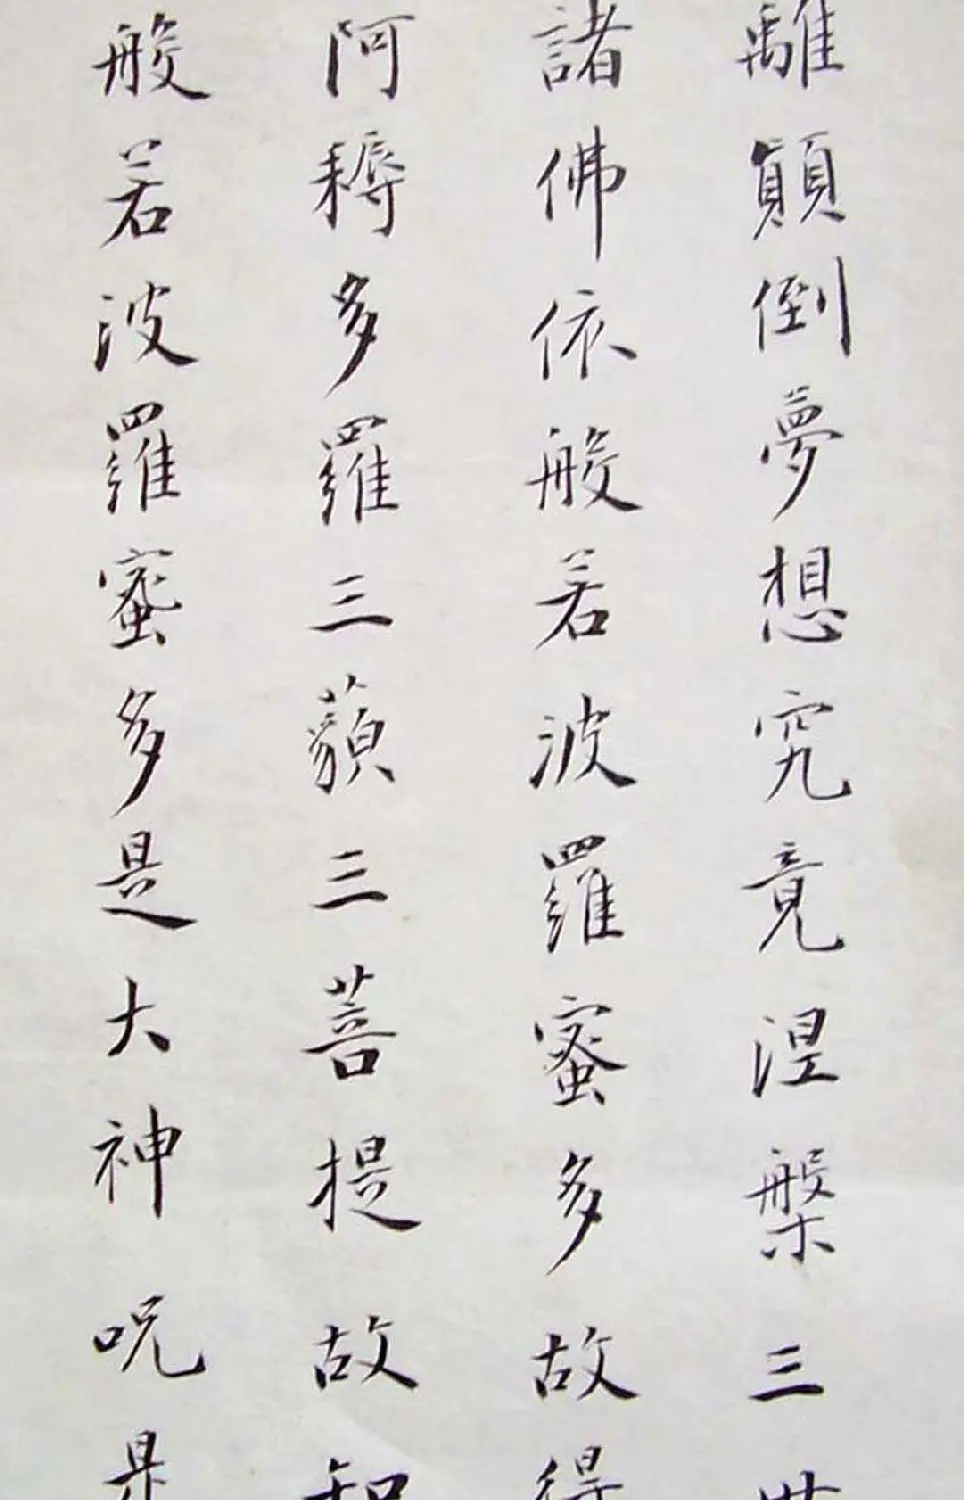 離顛倒夢想究竟涅槃三世
諸佛依般若波羅蜜多故得
阿耨多羅三藐三菩提故知
般若波羅蜜多是大神呪是